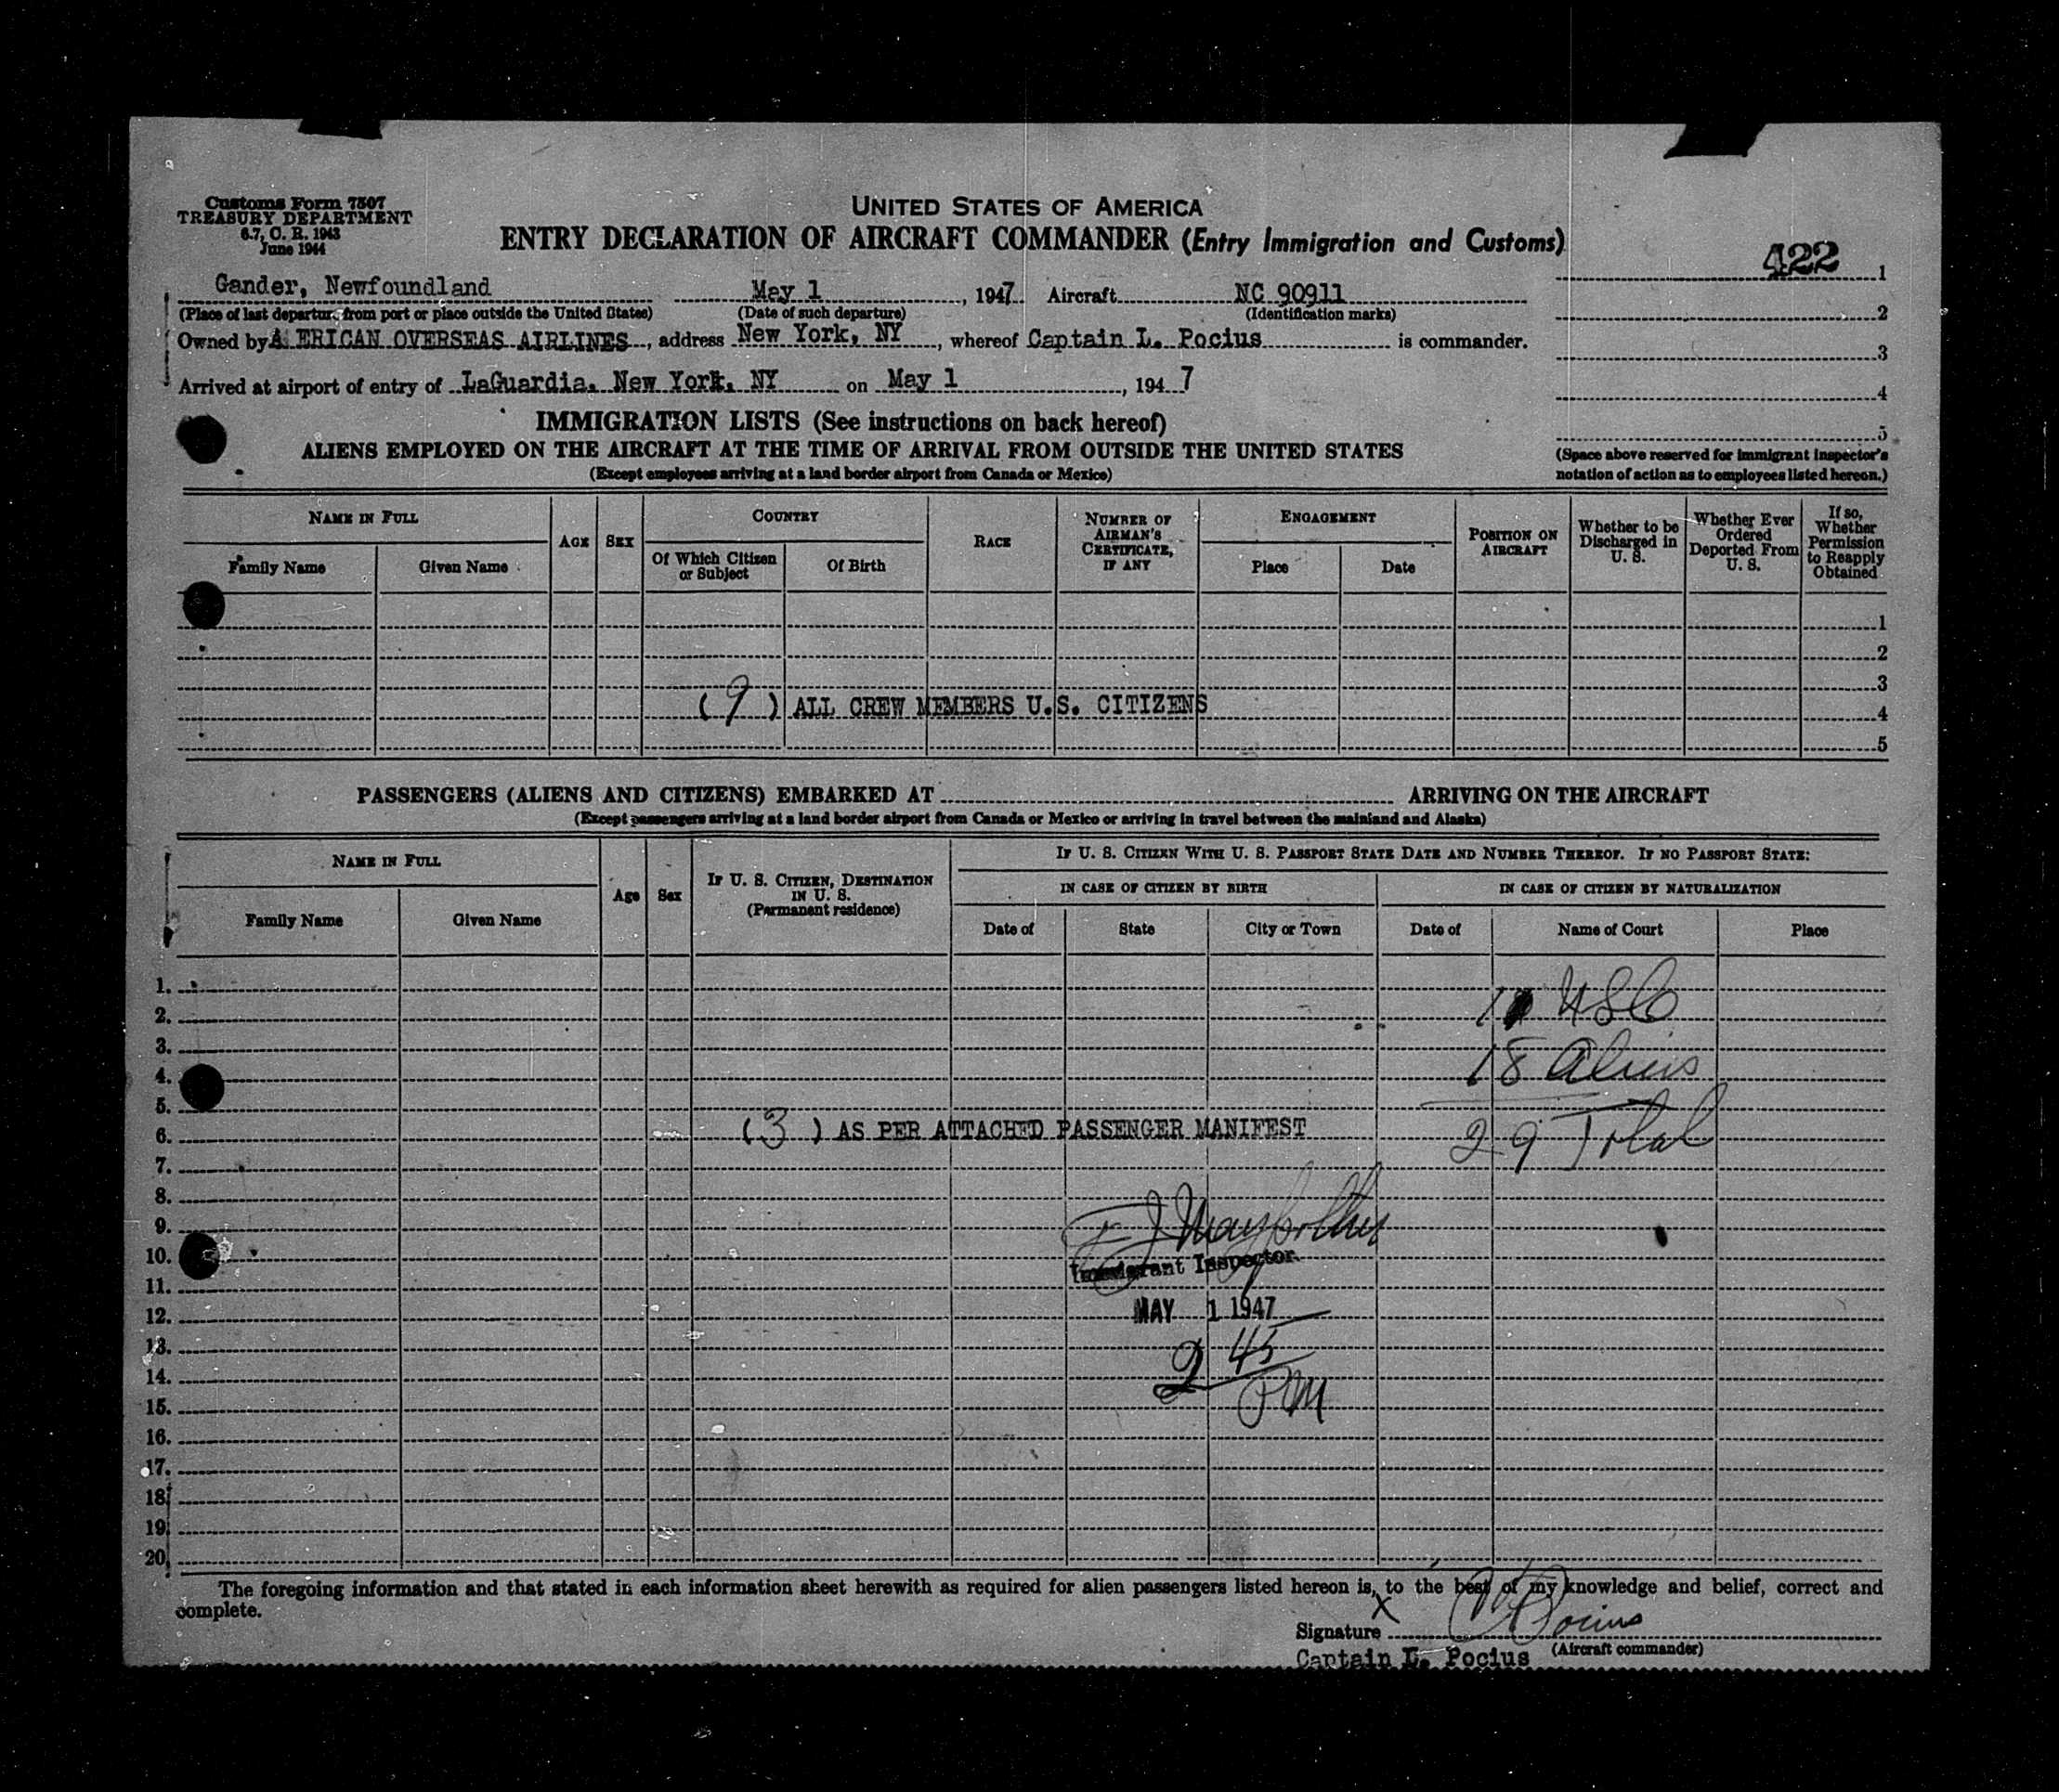 Customs Form 7507
TREASURY DEPARTMENT
6.7, C. R. 1943
June 1944
UNITED STATES OF AMERICA
ENTRY DECLARATION OF AIRCRAFT COMMANDER (Entry Immigration and Customs)
422 1
Gander, Newfoundland May 1, 1947 Aircraft NC 90911
(Place of last departure from port or place outside the United States) (Date of such departure) (Identification marks)
2
Owned by A ERICAN OVERSEAS AIRLINES, address New York, NY, whereof Captain L. Pocius is commander.
3
Arrived at airport of entry of LaGuardia, New York, NY on May 1, 1947
4
IMMIGRATION LISTS (See instructions on back hereof)
5
ALIENS EMPLOYED ON THE AIRCRAFT AT THE TIME OF ARRIVAL FROM OUTSIDE THE UNITED STATES
(Except employees arriving at a land border airport from Canada or Mexico)
(Space above reserved for immigrant inspector's
notation of action as to employees listed hereon.)
NAME IN FULL
Family Name
Given Name
AGE
SEX
COUNTRY
Of Which Citizen
or Subject
Of Birth
RACE
NUMBER OF
AIRMAN'S
CERTIFICATE,
IF ANY
ENGAGEMENT
Place
Date
POSITION ON
AIRCRAFT
Whether to be
Discharged in
U. S.
Whether Ever
Ordered
Deported From
U. S.
If so,
Whether
Permission
to Reapply
Obtained
1
2
3
(9) ALL CREW MEMBERS U.S. CITIZENS
4
5
PASSENGERS (ALIENS AND CITIZENS) EMBARKED AT ARRIVING ON THE AIRCRAFT
(Except passengers arriving at a land border airport from Canada or Mexico or arriving in travel between the mainland and Alaska)
NAME IN FULL
Family Name
Given Name
Age
Sex
IF U. S. CITIZEN, DESTINATION
IN U. S.
(Permanent residence)
IF U. S. CITIZEN WITH U. S. PASSPORT STATE DATE AND NUMBER THEREOF. IF NO PASSPORT STATE:
IN CASE OF CITIZEN BY BIRTH
IN CASE OF CITIZEN BY NATURALIZATION
Date of
State
City or Town
Date of
Name of Court
Place
1.
2. 11 USC
3.
4. 18 Aliens
5.
6. (3) AS PER ATTACHED PASSENGER MANIFEST 29 Total
7.
8.
9.
10.
Immigrant Inspector
11.
12. MAY 1 1947
13.
14. 2 45
15. PM
16.
17.
18.
19.
20.
The foregoing information and that stated in each information sheet herewith as required for alien passengers listed hereon is, to the best of my knowledge and belief, correct and
complete.
X
Signature L Pocius
(Aircraft commander)
Captain L. Pocius